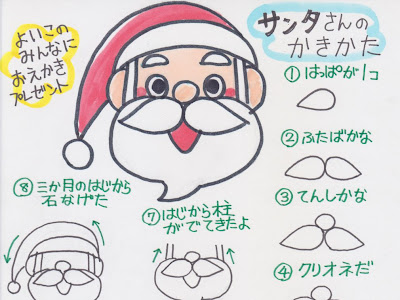 よいこの
みんなに
おえかき
プレゼント
サンタさんの
かきかた
①はっぱが1コ
②ふたばかな
③てんしかな
④クリオネだ
⑦はじから柱
がでてきたよ
⑧三か月のはじから
石なげた